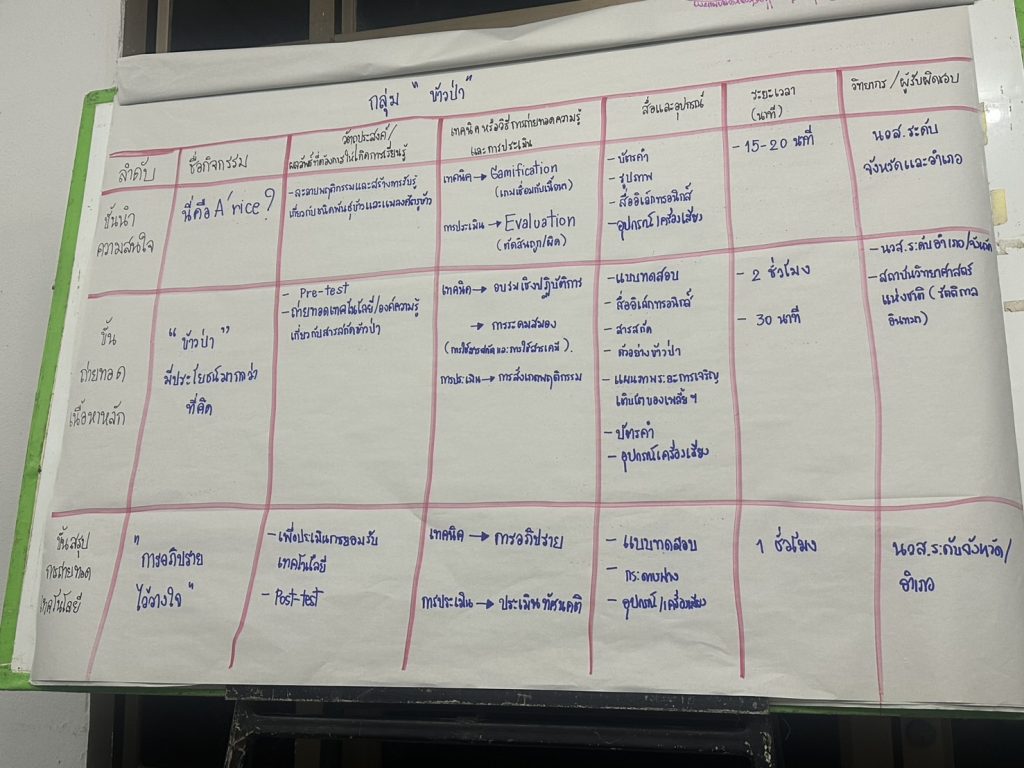 กลุ่ม "ข้าวป่า"
ลำดับ
ชื่อกิจกรรม
วัตถุประสงค์/
ผลลัพธ์ที่ต้องการให้เกิดการเรียนรู้
เทคนิค หรือวิธีการถ่ายทอดความรู้
และการประเมิน
สื่อและอุปกรณ์
ระยะเวลา
(นาที)
วิทยากร/ผู้รับผิดชอบ
ขั้นนำ
ความสนใจ
นี่คือ A'rice?
- ละลายพฤติกรรมและสร้างการรับรู้
เกี่ยวกับชนิดพันธุ์ข้าวและแมลงศัตรูข้าว
เทคนิค → Gamification
(เกมเชื่อมกับเนื้อหา)
การประเมิน → Evaluation
(ตัดสินถูก/ผิด)
- บัตรคำ
- รูปภาพ
- สื่ออิเล็กทรอนิกส์
- อุปกรณ์/เครื่องเสียง
- 15-20 นาที
นวส.ระดับ
จังหวัดและอำเภอ
ขั้น
ถ่ายทอด
เนื้อหาหลัก
"ข้าวป่า"
มีประโยชน์มากกว่า
ที่คิด
- Pre-test
- ถ่ายทอดเทคโนโลยี/องค์ความรู้
เกี่ยวกับสารสกัดข้าวป่า
เทคนิค → อบรมเชิงปฏิบัติการ
→ การระดมสมอง
(การใช้สารสกัดและการใช้สารเคมี).
การประเมิน → การสังเกตพฤติกรรม
- แบบทดสอบ
- สื่ออิเล็กทรอนิกส์
- สารสกัด
- ตัวอย่างข้าวป่า
- แผนภาพระยะการเจริญ
เติบโตของเพลี้ยฯ
- บัตรคำ
- อุปกรณ์เครื่องเสียง
- 2 ชั่วโมง
- 30 นาที
- นวส.ระดับอำเภอ/จังหวัด
- สถาบันวิทยาศาสตร์
แห่งชาติ (รัตติกาล
อินทมา)
ขั้นสรุป
การถ่ายทอด
เทคโนโลยี
"การอภิปราย
ไว้วางใจ"
- เพื่อประเมินการยอมรับ
เทคโนโลยี
- Post-test
เทคนิค → การอภิปราย
การประเมิน → ประเมินทัศนคติ
- แบบทดสอบ
- กระดาษฟาง
- อุปกรณ์/เครื่องเสียง
1 ชั่วโมง
นวส.ระดับจังหวัด/
อำเภอ